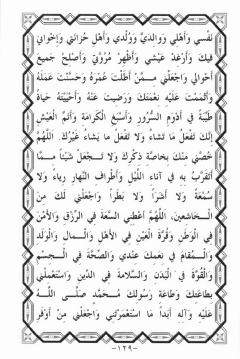 نَفْسِي وَأَهْلِي وَوَالِدَيَّ وَوُلْدِي وَأَهْلِ حُزَانَتِي وَإِخْوَانِي
فِيكَ وَأَرْغِدْ عَيْشِي وَأَظْهِرْ مُرُوَّتِي وَأَصْلِحْ جَمِيعَ
أَحْوَالِي وَاجْعَلْنِي مِمَّنْ أَطَلْتَ عُمُرَهُ وَحَسَّنْتَ عَمَلَهُ
وَأَتْمَمْتَ عَلَيْهِ نِعْمَتَكَ وَرَضِيتَ عَنْهُ وَأَحْيَيْتَهُ حَيَاةً
طَيِّبَةً فِي أَدْوَمِ السُّرُورِ وَأَسْبَغِ الْكَرَامَةِ وَأَتَمِّ الْعَيْشِ
إِنَّكَ تَفْعَلُ مَا تَشَاءُ وَلَا تَفْعَلُ مَا يَشَاءُ غَيْرُكَ. اللَّهُمَّ
خُصَّنِي مِنْكَ بِخَاصَّةِ ذِكْرِكَ وَلَا تَجْعَلْ شَيْئًا مِمَّا
أَتَقَرَّبُ بِهِ فِي آنَاءِ اللَّيْلِ وَأَطْرَافِ النَّهَارِ رِيَاءً وَلَا
سُمْعَةً وَلَا أَشَرًا وَلَا بَطَرًا وَاجْعَلْنِي لَكَ مِنَ
الْخَاشِعِينَ، اللَّهُمَّ أَعْطِنِي السَّعَةَ فِي الرِّزْقِ وَالْأَمْنَ
فِي الْوَطَنِ وَقُرَّةَ الْعَيْنِ فِي الْأَهْلِ وَالْمَالِ وَالْوَلَدِ
وَالْمُقَامَ فِي نِعَمِكَ عِنْدِي وَالصِّحَّةَ فِي الْجِسْمِ
وَالْقُوَّةَ فِي الْبَدَنِ وَالسَّلَامَةَ فِي الدِّينِ وَاسْتَعْمِلْنِي
بِطَاعَتِكَ وَطَاعَةِ رَسُولِكَ مُحَمَّدٍ صَلَّى اللَّهُ
عَلَيْهِ وَآلِهِ أَبَدًا مَا اسْتَعْمَرْتَنِي وَاجْعَلْنِي مِنْ أَوْفَرِ
-١٢٩-